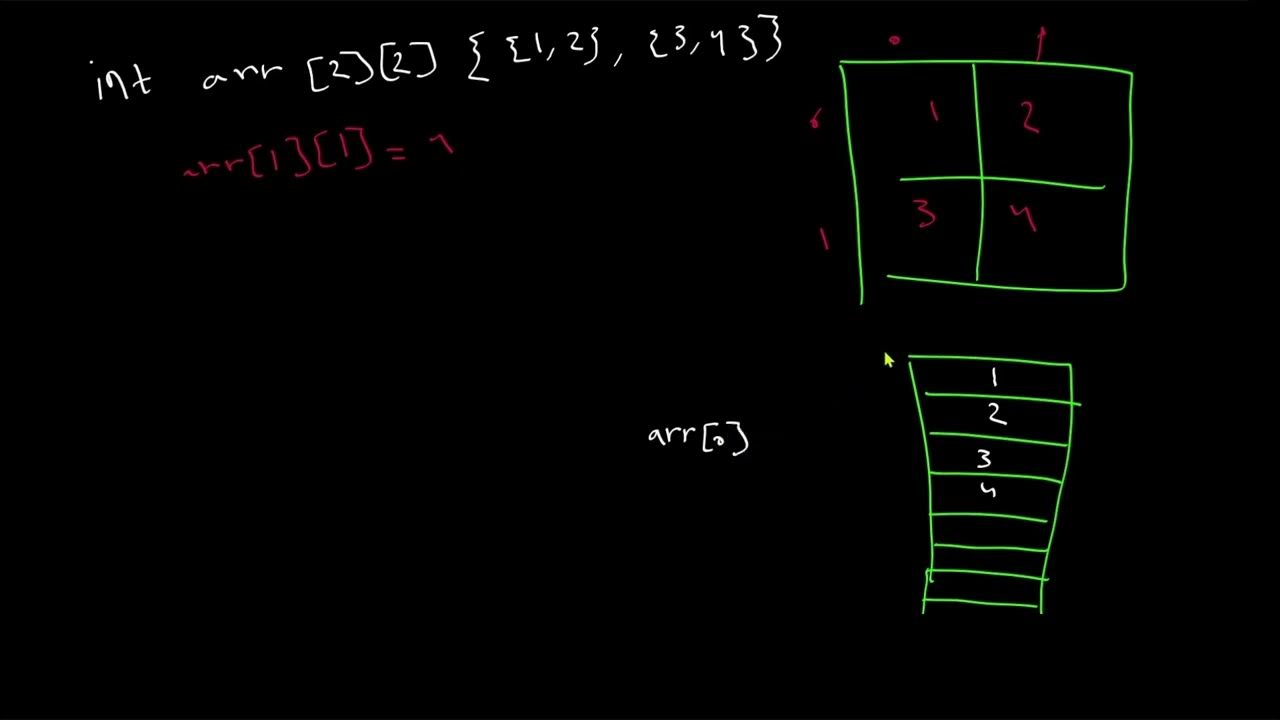 int arr [2][2] { {1,2} , {3,4}}
arr[1][1] = 4
0 1
0 1 2
1 3 4
1
2
arr[0]
3
4